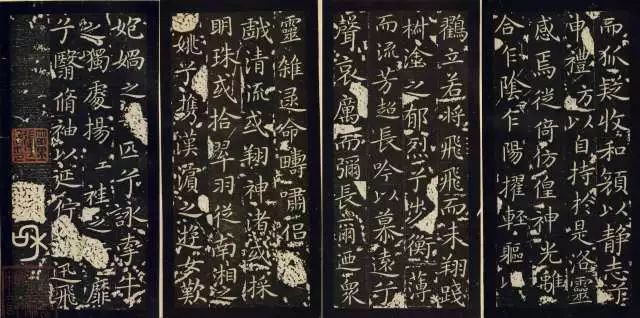 而狐疑收和顏以静志兮
申禮防以自持於是洛靈
感焉徙倚仿偟神光離
合乍陰乍陽擢輕軀以
鸛立若將飛飛而未翔踐
椒塗之郁烈兮步衡薄
而流芳超長吟以慕遠兮
聲哀厲而彌長爾迺衆
靈雜遝命疇肅侣
戲清流或翔神渚或採
明珠或拾翠羽從南湘之
姚兮攜漢濱之遊女歎
妃媧之匹兮詠牽牛
之獨處揚輕袿之靡
兮翳脩袖以延佇迅飛